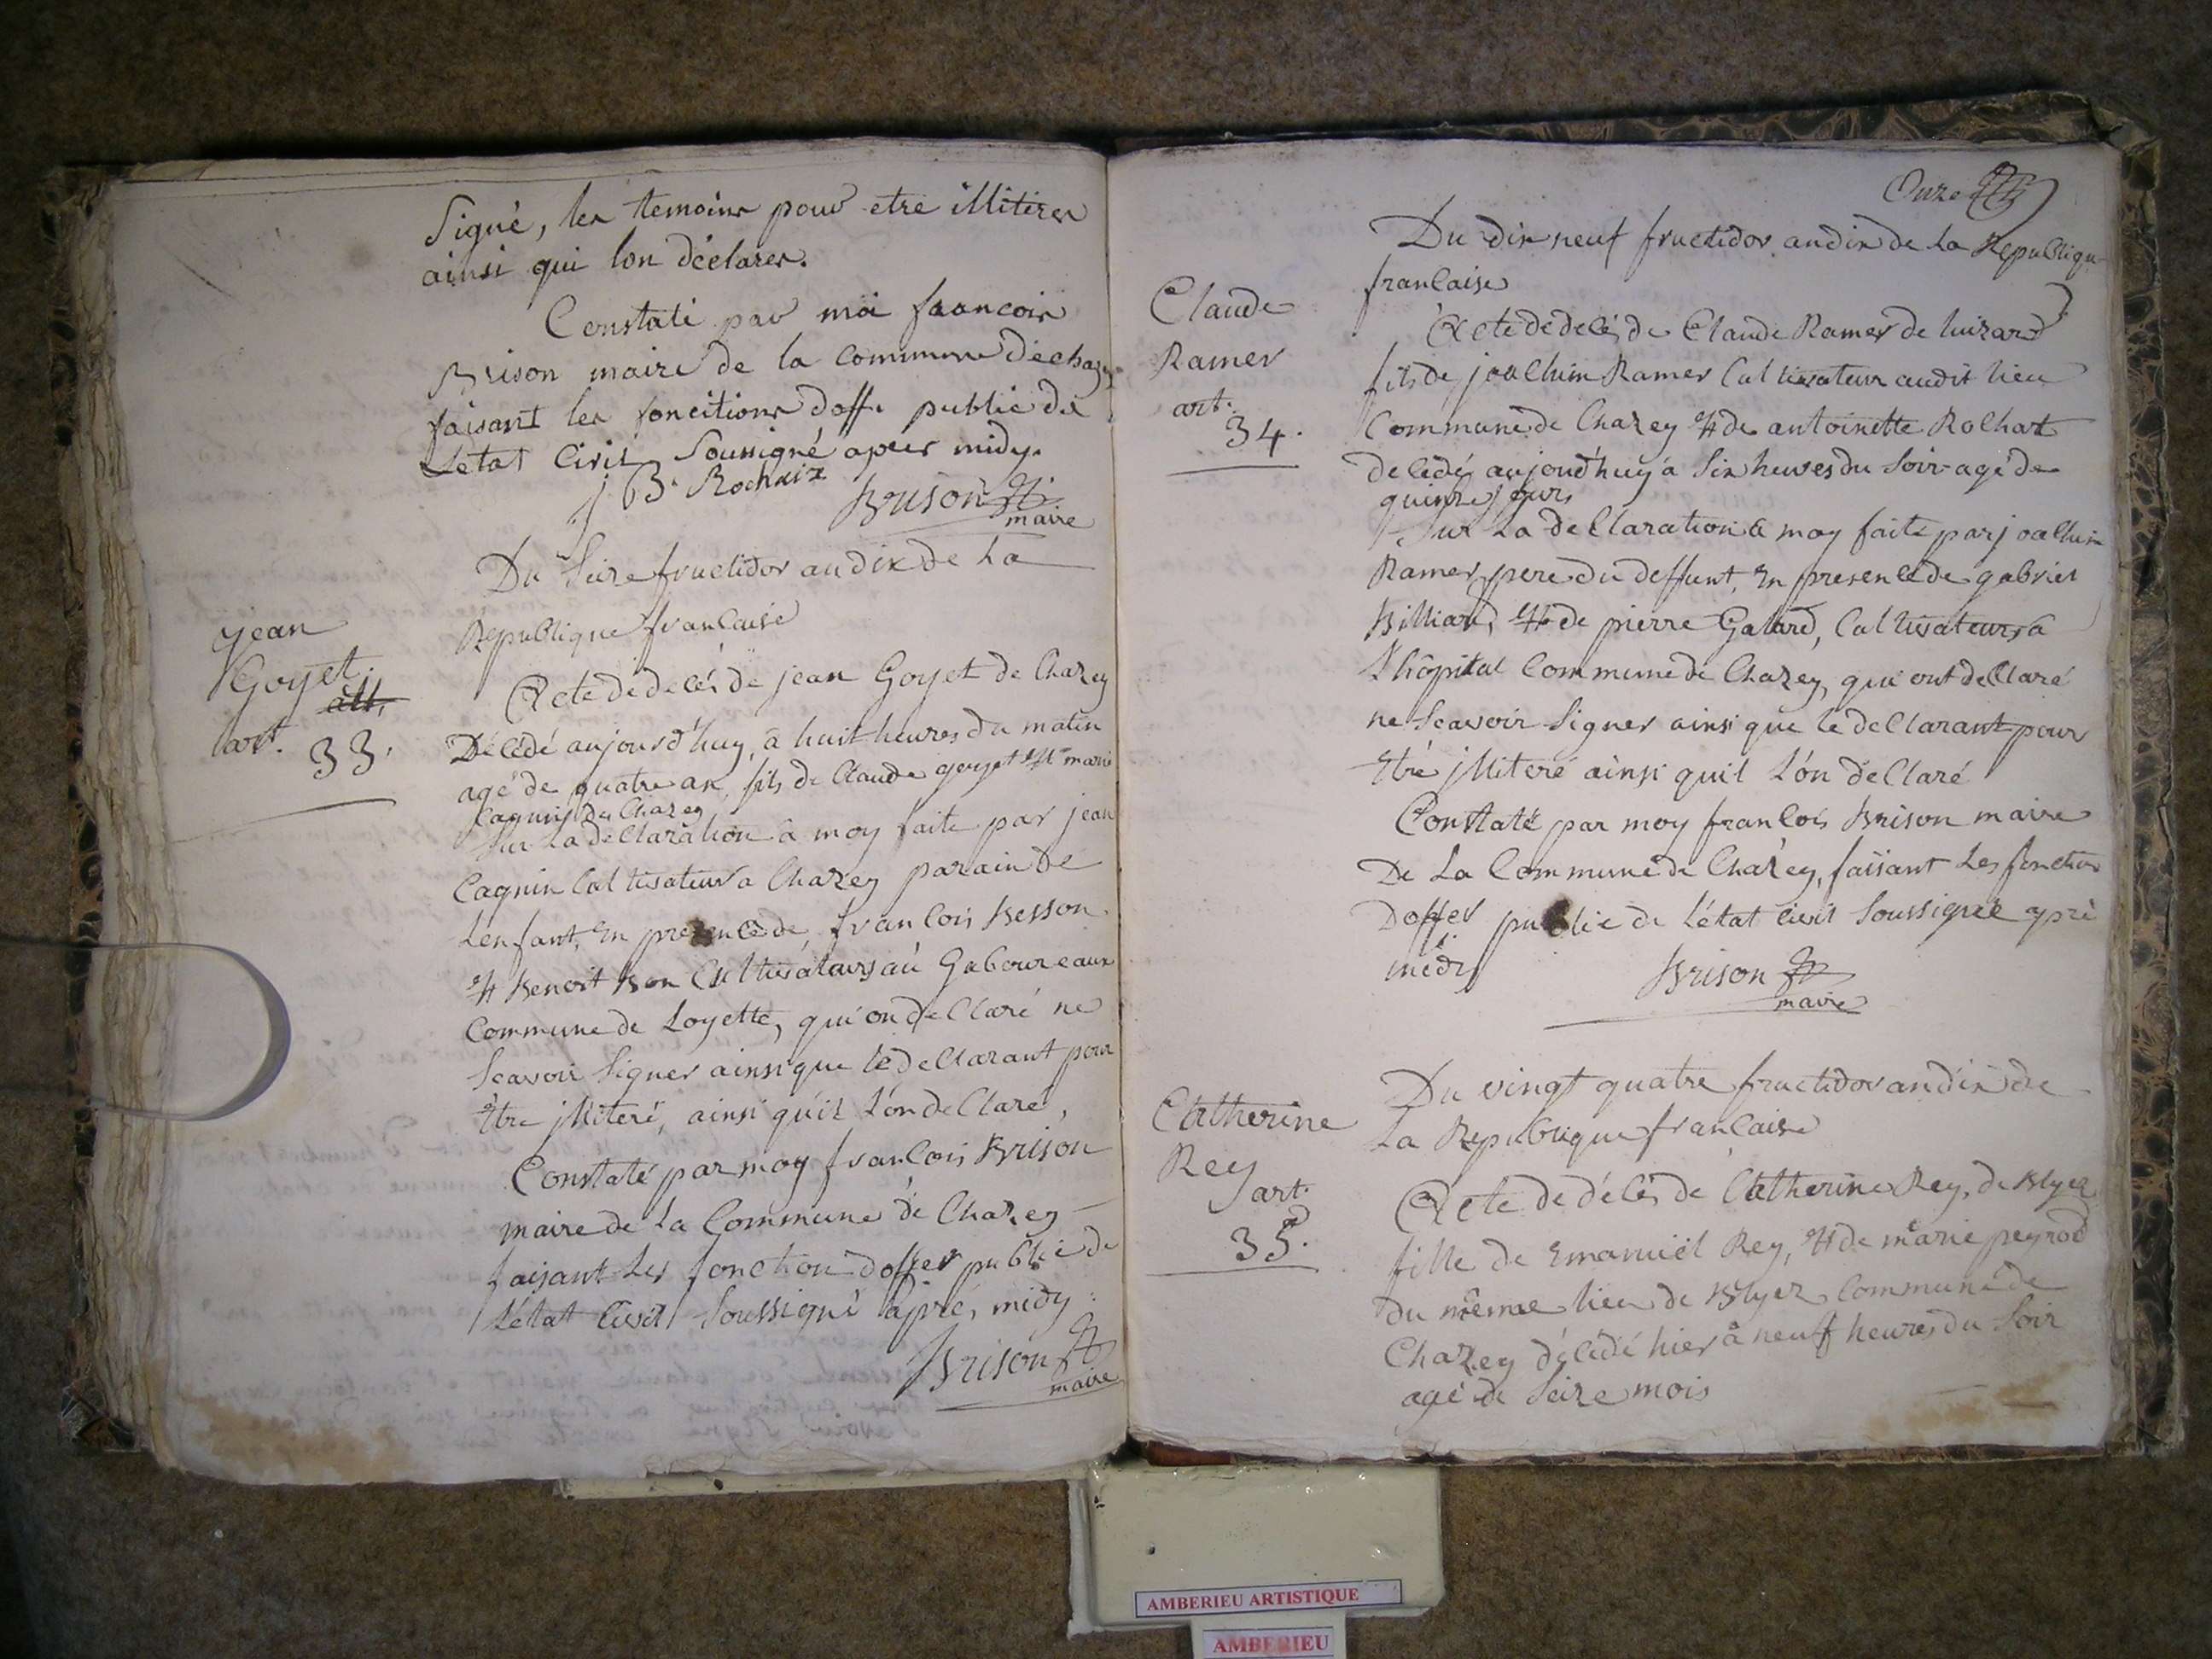 Signé, les temoins pour etre illitires
ainsi qui lon déclarer.
Constaté par moi francois
Brison maire de la commune de chazey
faisant les foncitions doff. public de
Letat Civil Soussigné apres midy.
J B. Rochaix
Brison
maire
Du Seize fructidor an dix de La
Republique francaise
jean
Goyet
art.
33.
Acte de decés de jean Goyet de Chazey
Décédé aujourd'huy, a huit heures du matin
agé de quatre an, fils de Claude goyet et marie
Cagnin de Chazey
Sur La declaration a moy faite par jean
Cagnin Cultivateur a Chazey parain de
Lenfant, En presence de, francois Besson
et Benoit Bon Cultivateurs au Gaboureaux
Commune de Loyette, qui on declaré ne
Scavoir Signer ainsi que le declarant pour
Etre illiteré, ainsi quil L'on declaré,
Constaté par moy francois Brison
maire de La Commune de Chazey
faisant Les fonction doffer public de
L'état Civil Soussigné aprés midy
Brison
maire
Onze
Du dix neuf fructidor an dix de La Republique
francaise
Claude
Ramer
art.
34.
Acte de decés de Claude Ramer de luizard
fils de joachim Ramer Cultivateur audit lieu
Commune de Chazey et de antoinette Rochat
decedé aujourd'huy a Six heures du Soir agé de
quinze jours
Sur La declaration a moy faite par joachim
Ramer, pere du deffunt, En presence de gabriel
Billiard, et de pierre Galard, Cultivateurs a
L'hôpital Commune de Chazey, qui ont declaré
ne Scavoir Signer ainsi que le declarant pour
Etre illiteré ainsi quil L'on declaré
Constaté par moy francois Brison maire
De La Commune de Chazey, faisant Les fonction
Doffer public de L'état Civil Soussigné aprè
midy
Brison
maire
Du vingt quatre fructidor an dix de
La Republique francaise
Catherine
Rey
art.
35.
Acte de décés de Catherine Rey, de Blyez
fille de Emanuiel Rey, et de marie peyrod
du même lieu de Blyez Commune de
Chazey décédé hier a neuf heures du Soir
agé de Seize mois
AMBERIEU ARTISTIQUE
AMBERIEU